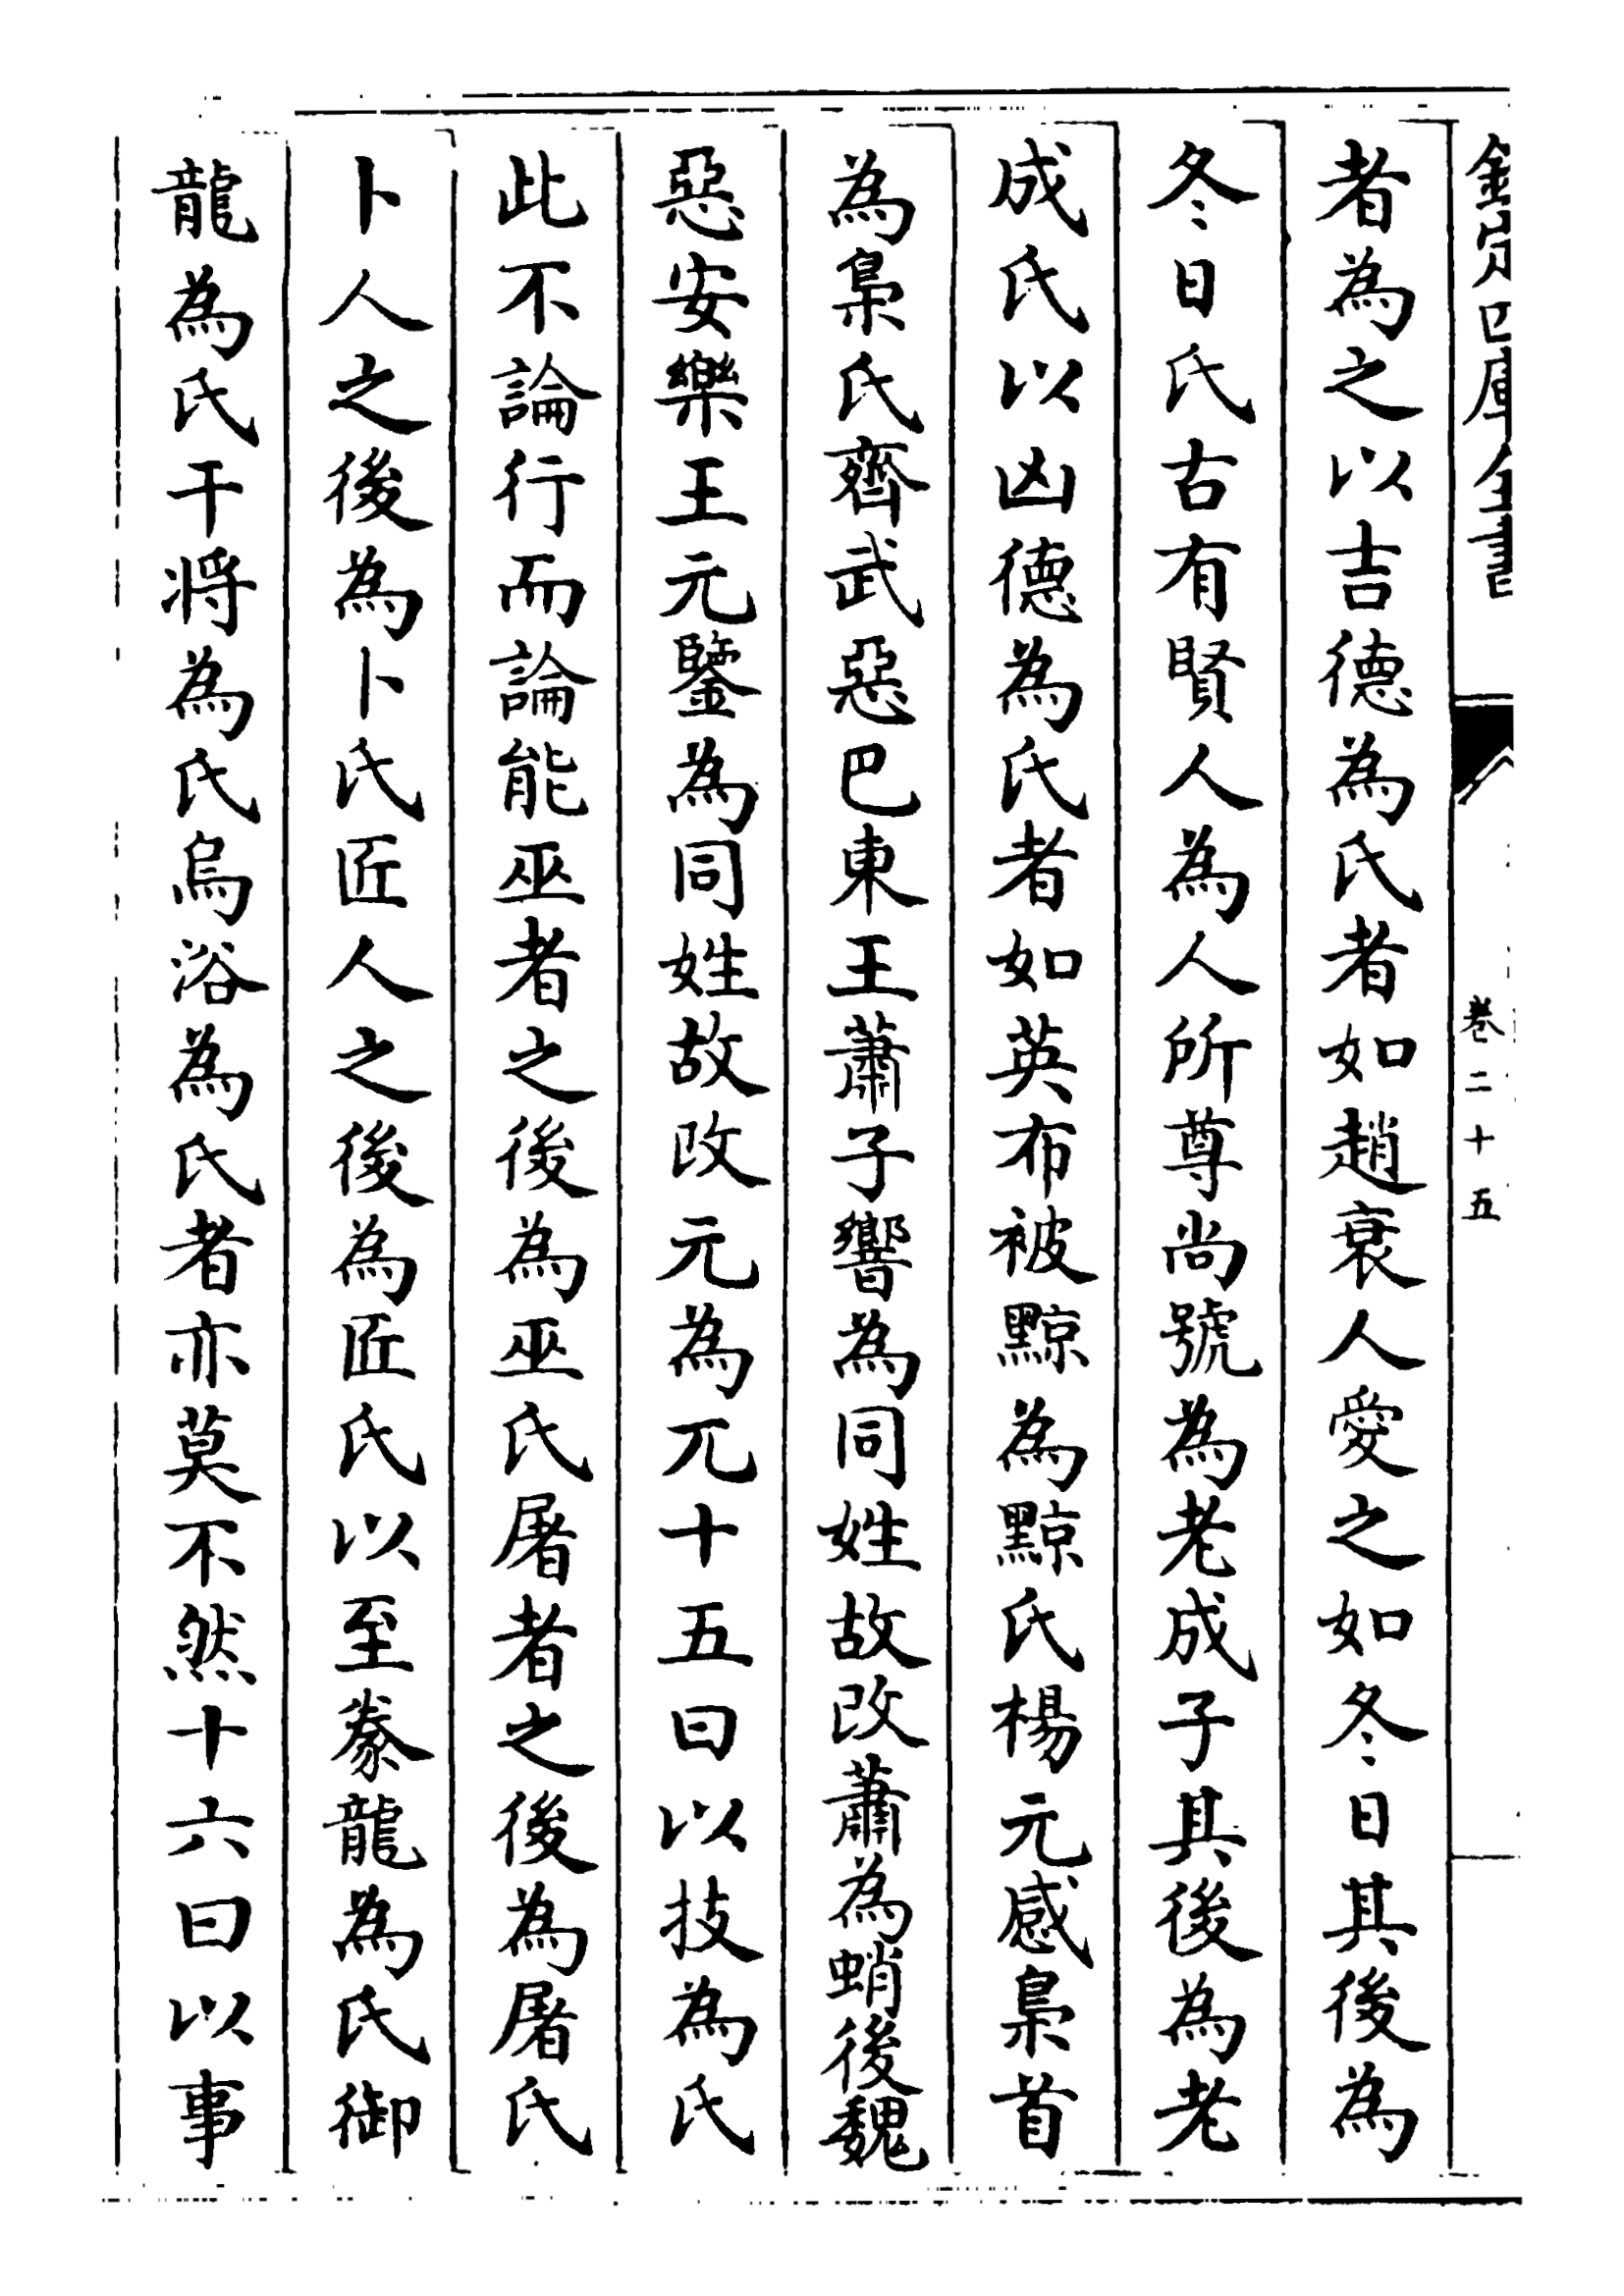 欽定四庫全書
卷二十五
者為之以吉德為氏者如趙衰人愛之如冬日其後為
冬日氏古有賢人為人所尊尚號為老成子其後為老
成氏以凶德為氏者如英布被黥為黥氏楊元感梟首
為梟氏齊武惡巴東王蕭子響為同姓故改蕭為蛸後魏
惡安樂王元鑒為同姓故改元為兀十五曰以技為氏
此不論行而論能巫者之後為巫氏屠者之後為屠氏
卜人之後為卜氏匠人之後為匠氏以至豢龍為氏御
龍為氏干將為氏烏浴為氏者亦莫不然十六曰以事